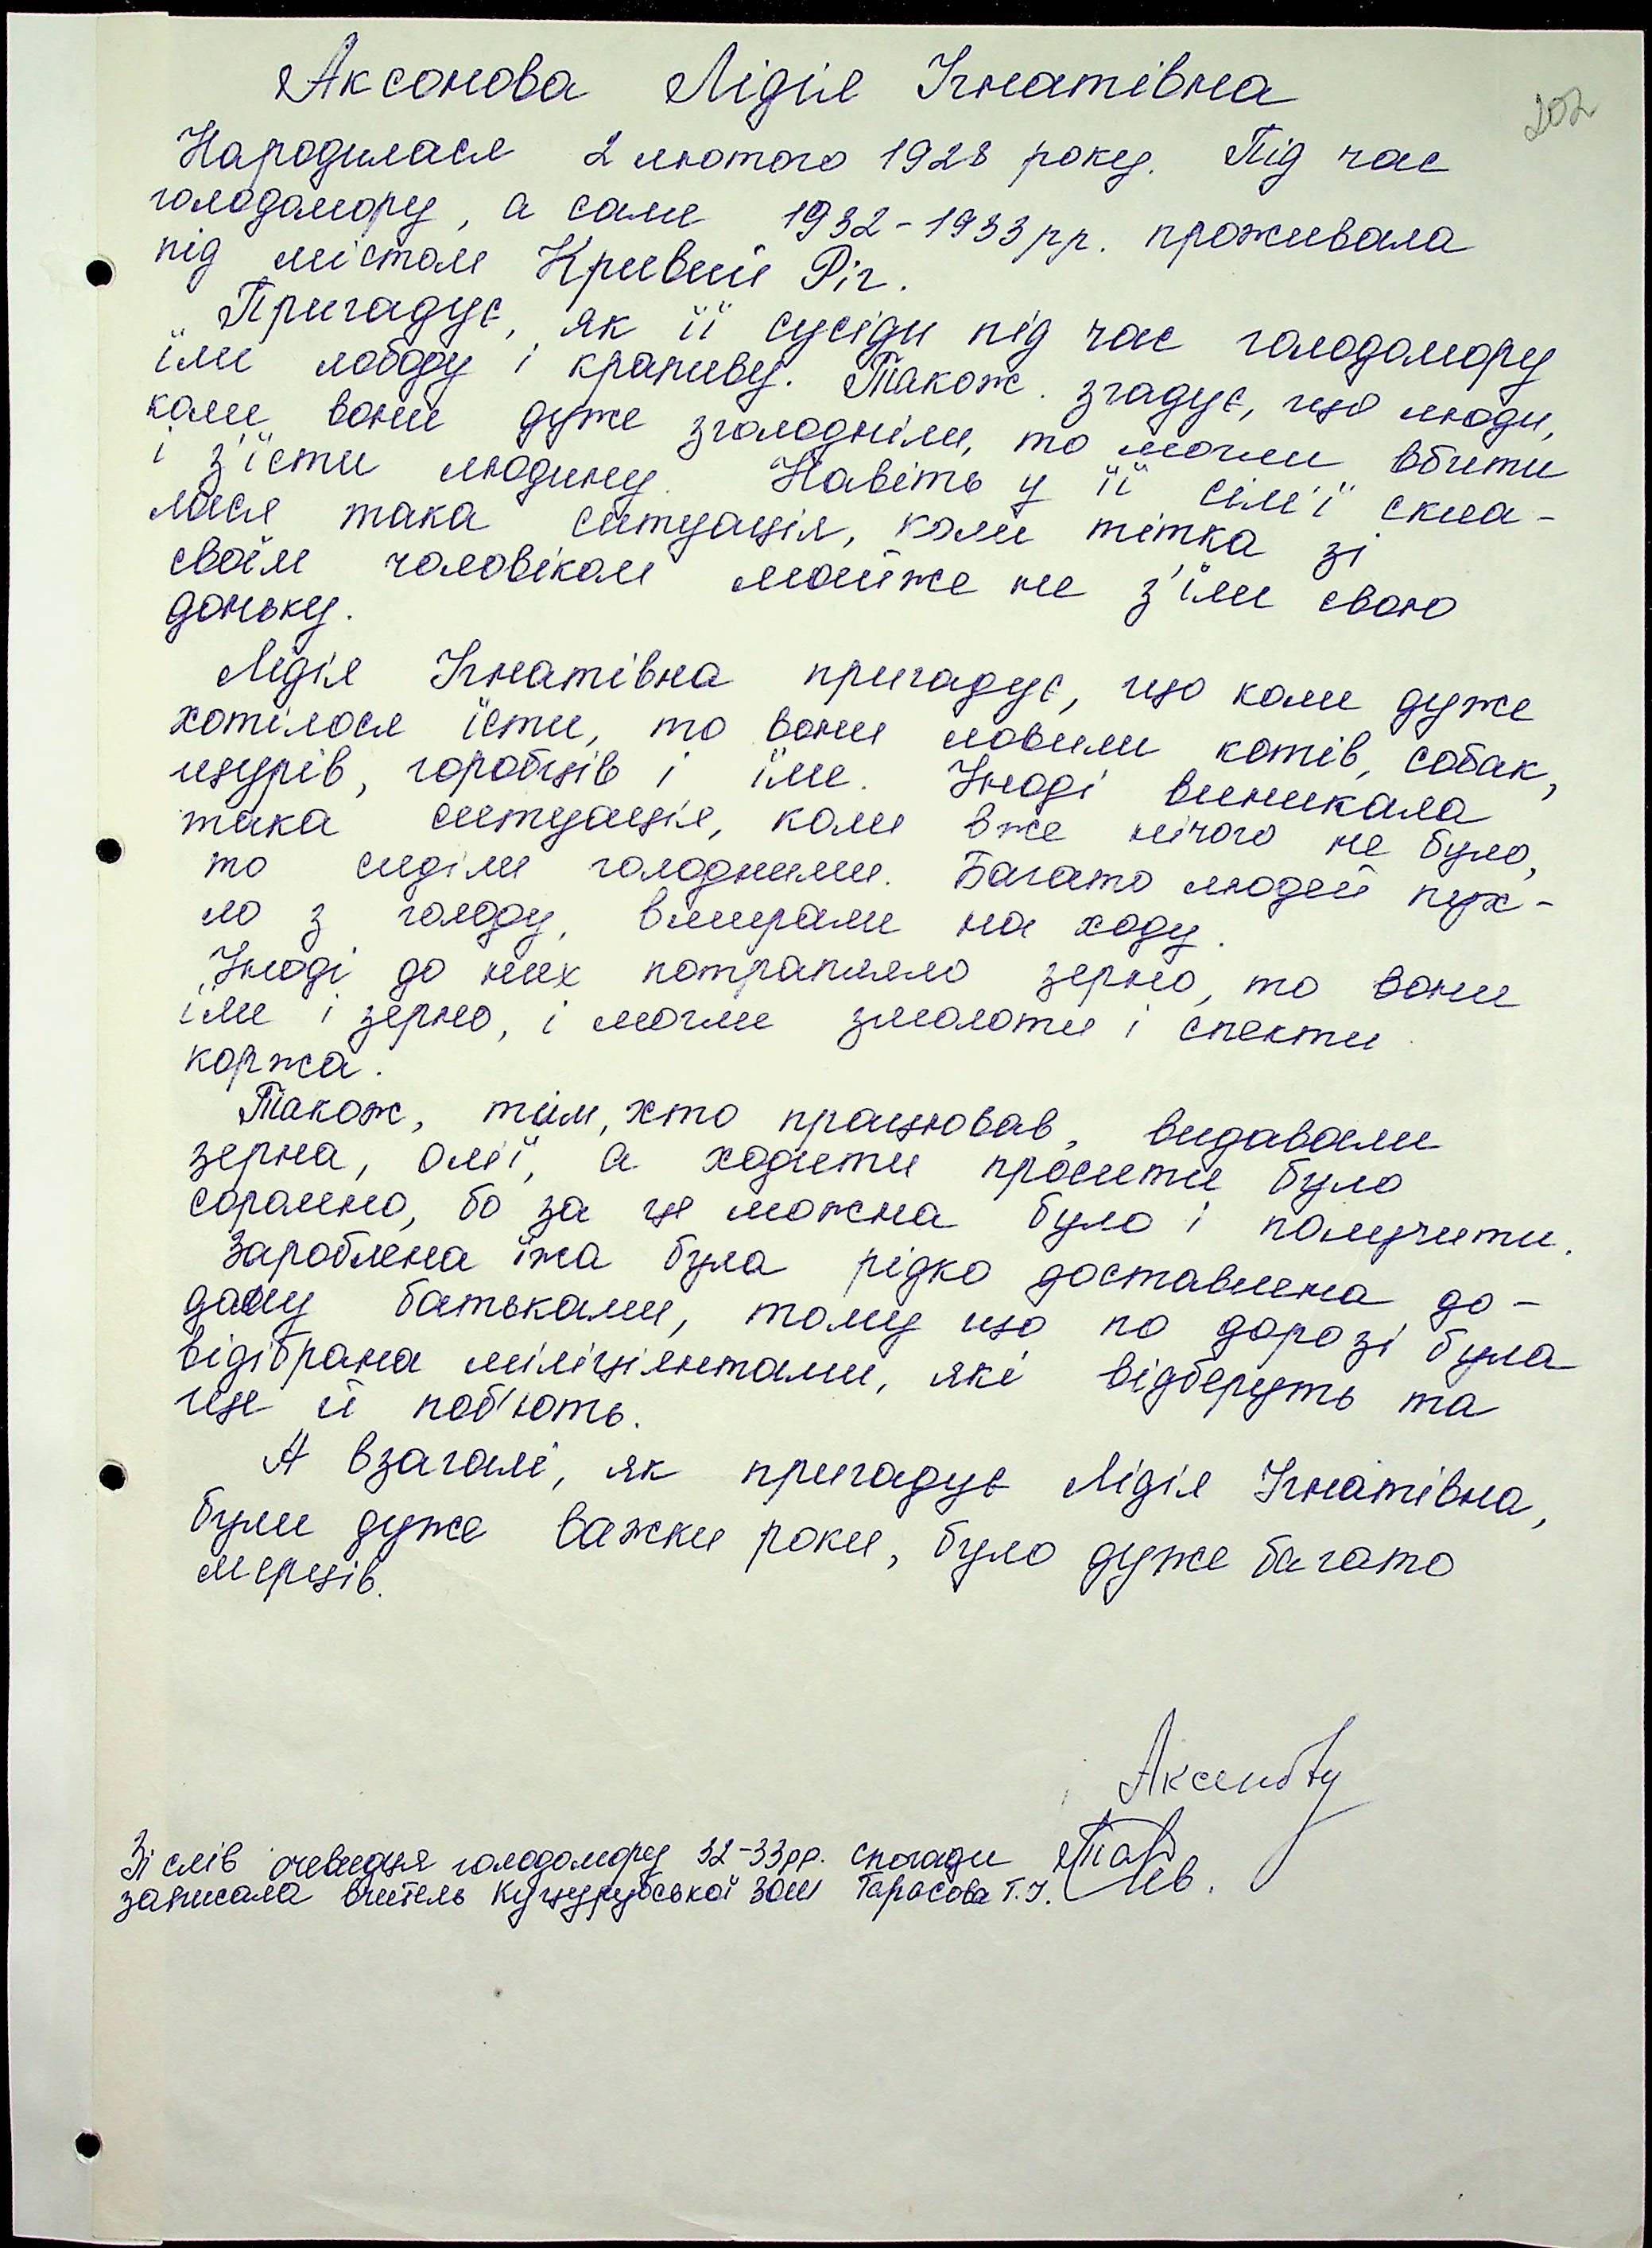 Аксонова Лідія Ігнатівна
202
Народилася 2 лютого 1928 року. Під час
голодомору, а саме 1932-1933 рр. проживала
під містом Кривий Ріг.
Пригадує, як її сусіди під час голодомору
їли лободу і крапиву. Також згадує, що люди,
коли вони дуже зголодніли, то могли вбити
і з'їсти людину. Навіть у її сім'ї скла-
лася така ситуація, коли тітка зі
своїм чоловіком майже не з'їли свою
доньку.
Лідія Ігнатівна пригадує, що коли дуже
хотілося їсти, то вони ловили котів, собак,
щурів, горобців і їли. Іноді виникала
така ситуація, коли вже нічого не було,
то сиділи голодними. Багато людей пух-
ло з голоду, вмирали на ходу.
Іноді до них потрапляло зерно, то вони
їли і зерно, і могли змолоти і спекти
коржа.
Також, тим, хто працював, видавали
зерна, олії, а ходити просити було
соромно, бо за це можна було і получити.
Зароблена їжа була рідко доставлена до-
дому батьками, тому що по дорозі була
відібрана міліціянтами, які відберуть та
ще й поб'ють.
А взагалі, як пригадує Лідія Ігнатівна,
були дуже важки роки, було дуже багато
мерців.
Зі слів очевидця голодомору 32-33рр. спогади
записала вчитель Куцурубської ЗОШ Тарасова Т.І.